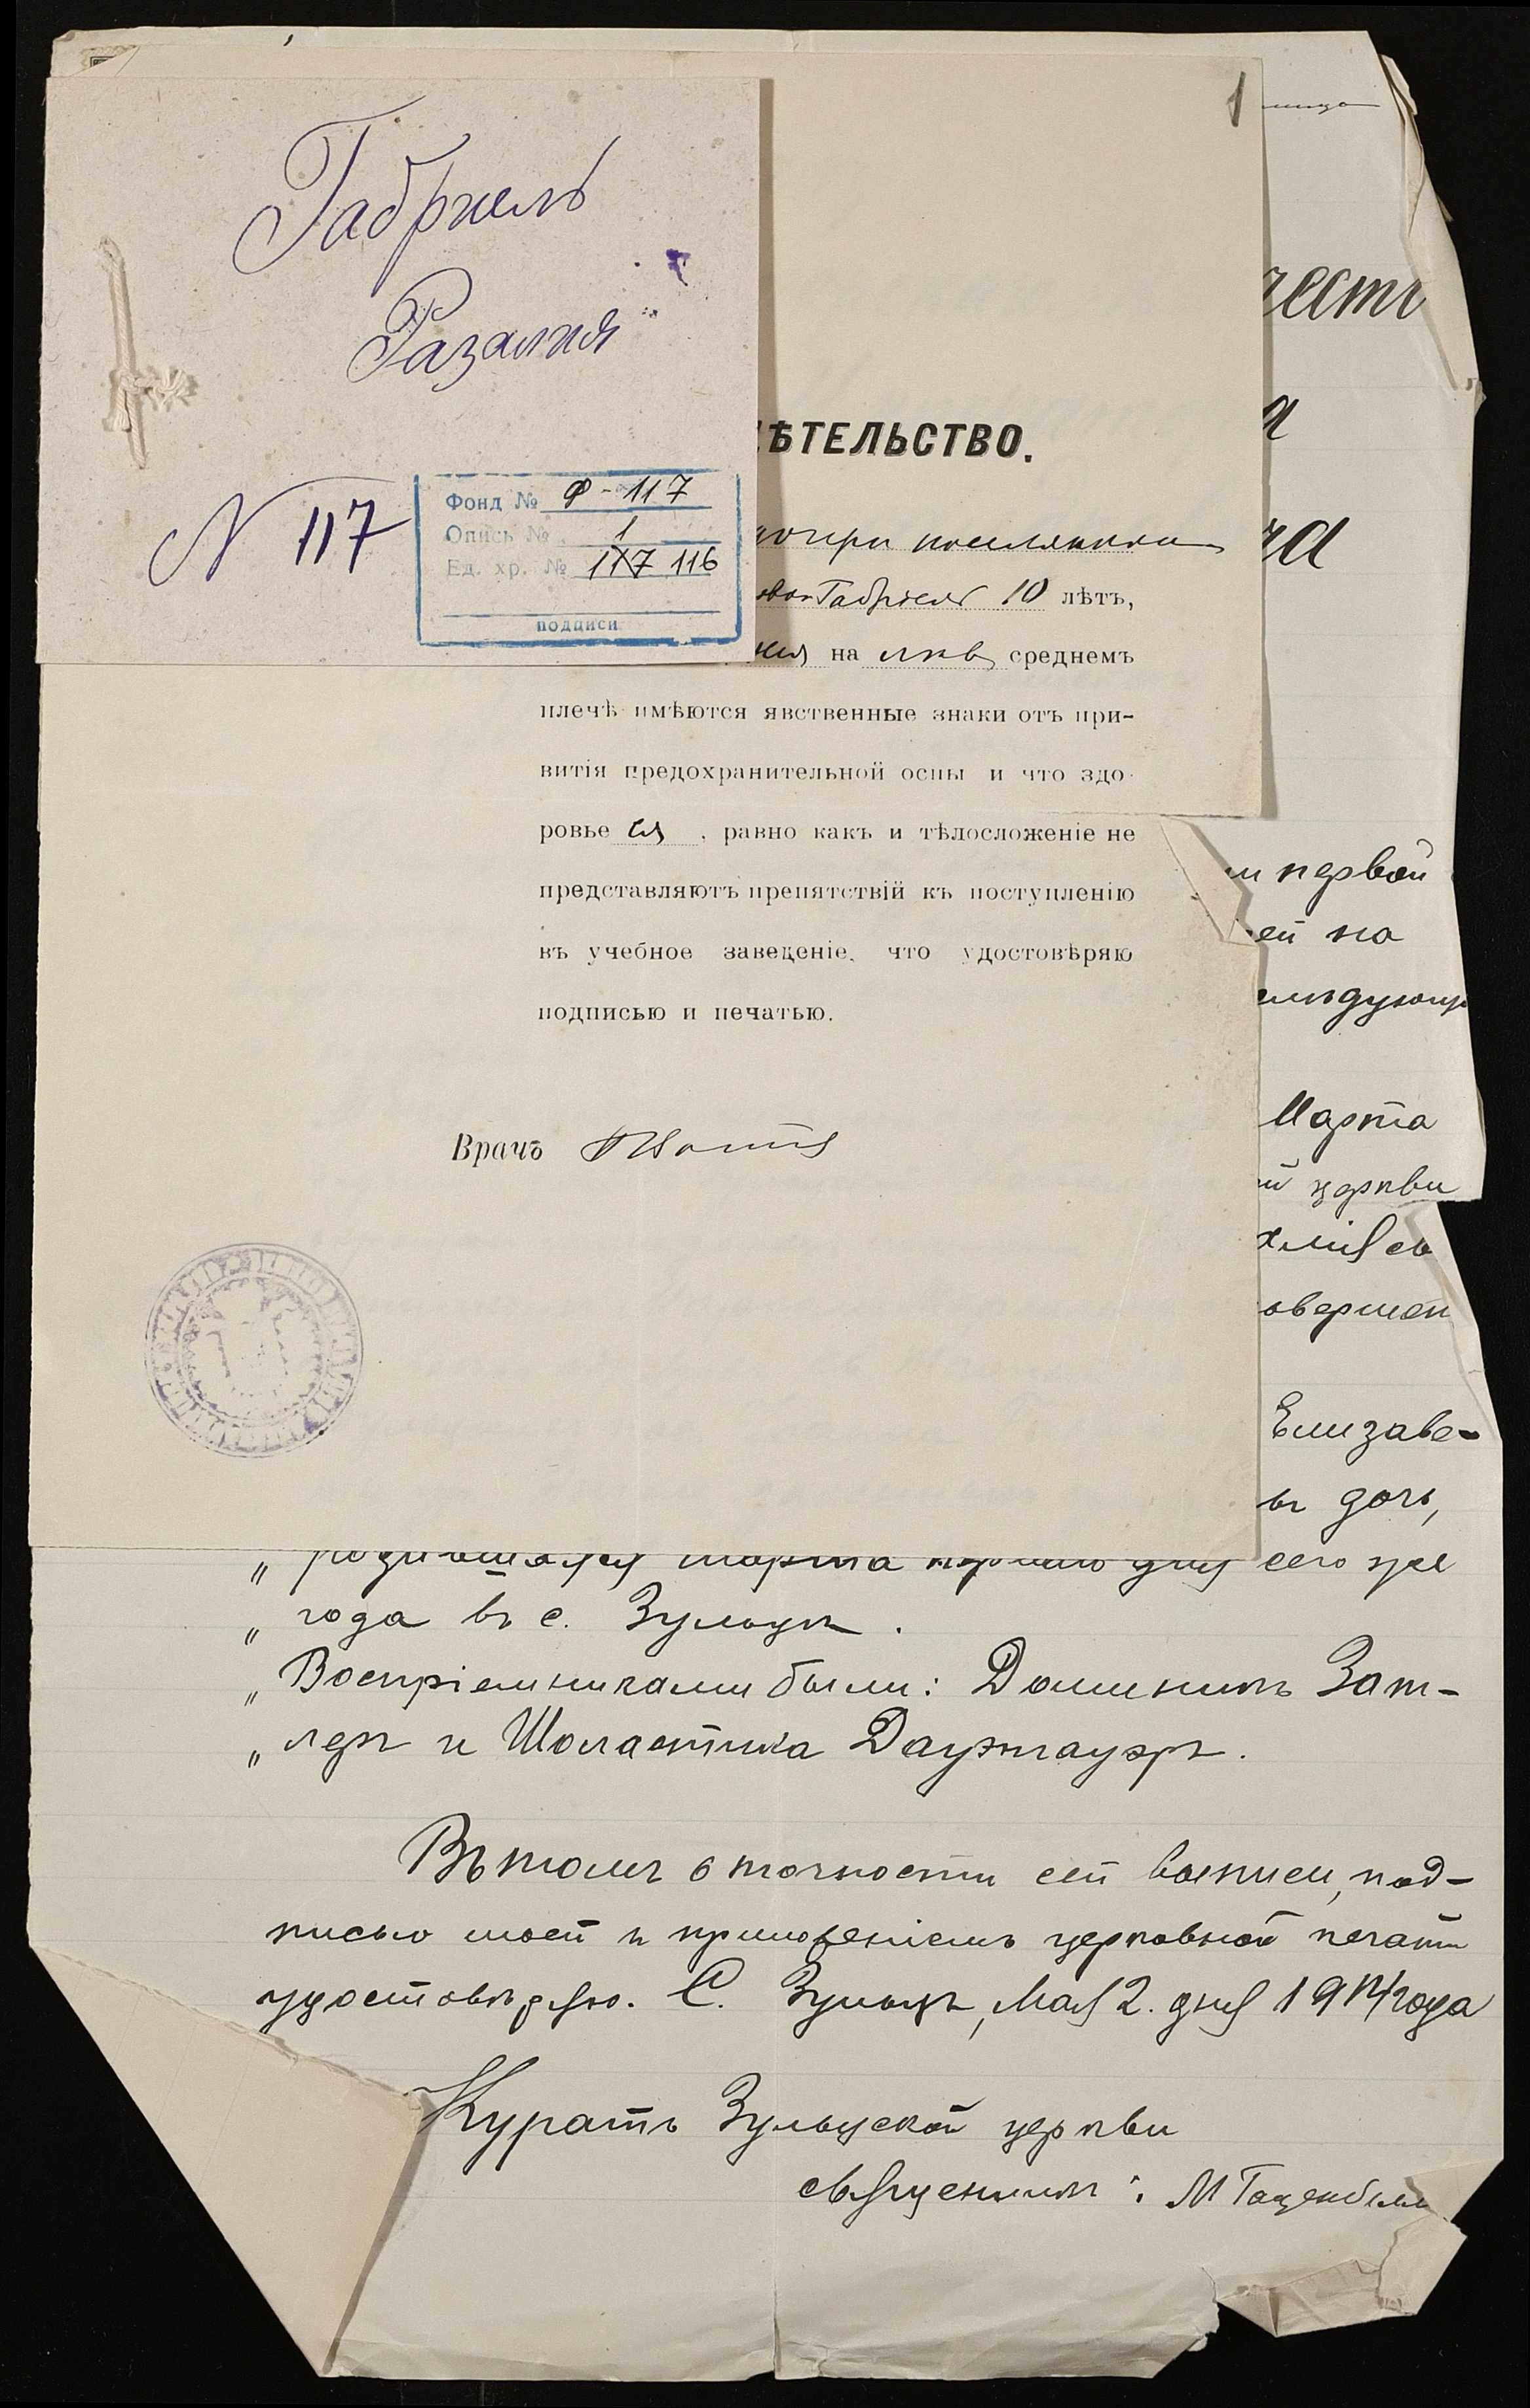 Габриель
Розалия
N 117
Фонд № Ф-117
Опись № 1
Ед. хр. № 117 116
подписи
1
ѢТЕЛЬСТВО.
дочери поселянина
Габріель 10 лѣтъ,
на лѣв среднемъ
плечѣ имѣются явственные знаки отъ при-
витія предохранительной оспы и что здо-
ровье ея, равно какъ и тѣлосложеніе не
представляютъ препятствій къ поступленію
въ учебное заведеніе, что удостовѣряю
подписью и печатью.
Врачъ
чест
а
на
первой
ей на
слѣдующ
Марта
й церкви
хлія св
овершен
Елизаве-
дочь,
„ родившаяся марта перваго дня сего же
„ года въ с. Зульцъ.
„ Воспріемниками были: Доминикъ Зат-
„ леръ и Шоластика Даунгауэръ.
Въ томъ о точности сей выписи, под-
писью моей и приложеніемъ церковной печати
удостовѣряю. С. Зульцъ, Мая 2. дня 1914 года
Куратъ Зульцской церкви
священникъ: М